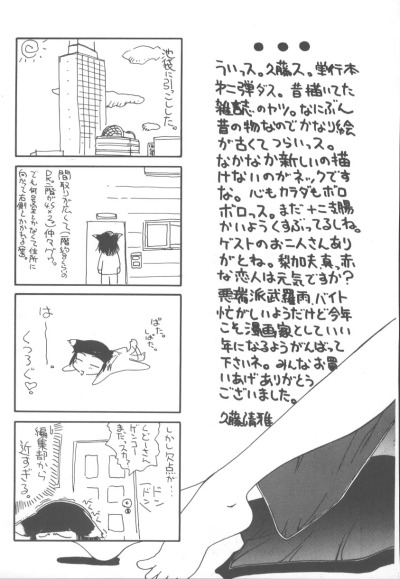 池袋に引っこした。
間取りが広くて(一階約
DK二階が4.5×2)仲々グー。
向かって右側としかわかねぇ家。
ぱた。
ぱた。
はー。
くつろぐ♡。
しかし欠点が…
ドン
ドン
くどーさん
ゲンコー
まだっスか?
編集部から
近すぎる。
●●●
ういっス。久藤ス。単行本
わ二弾ダス。昔描いてた
雑誌のヤツ。なにぶん
昔の物なのでかなり絵
が古くてつらいっス。
なかなか新しいの描
けないのがネックです
な。心もカラダもボロ
ボロっス。まだ十二支腸
かいようくすぶってるしね。
ゲストのお二人さんあり
がとね。梨加夫、真、赤
な恋人は元気ですか?
悪瑞派武羅雨、バイト
忙がしいようだけど今年
こそ漫画家としていい
年になるようがんばって
下さいネ。みんなお買
いあげありがとう
ございました。
久藤清雅